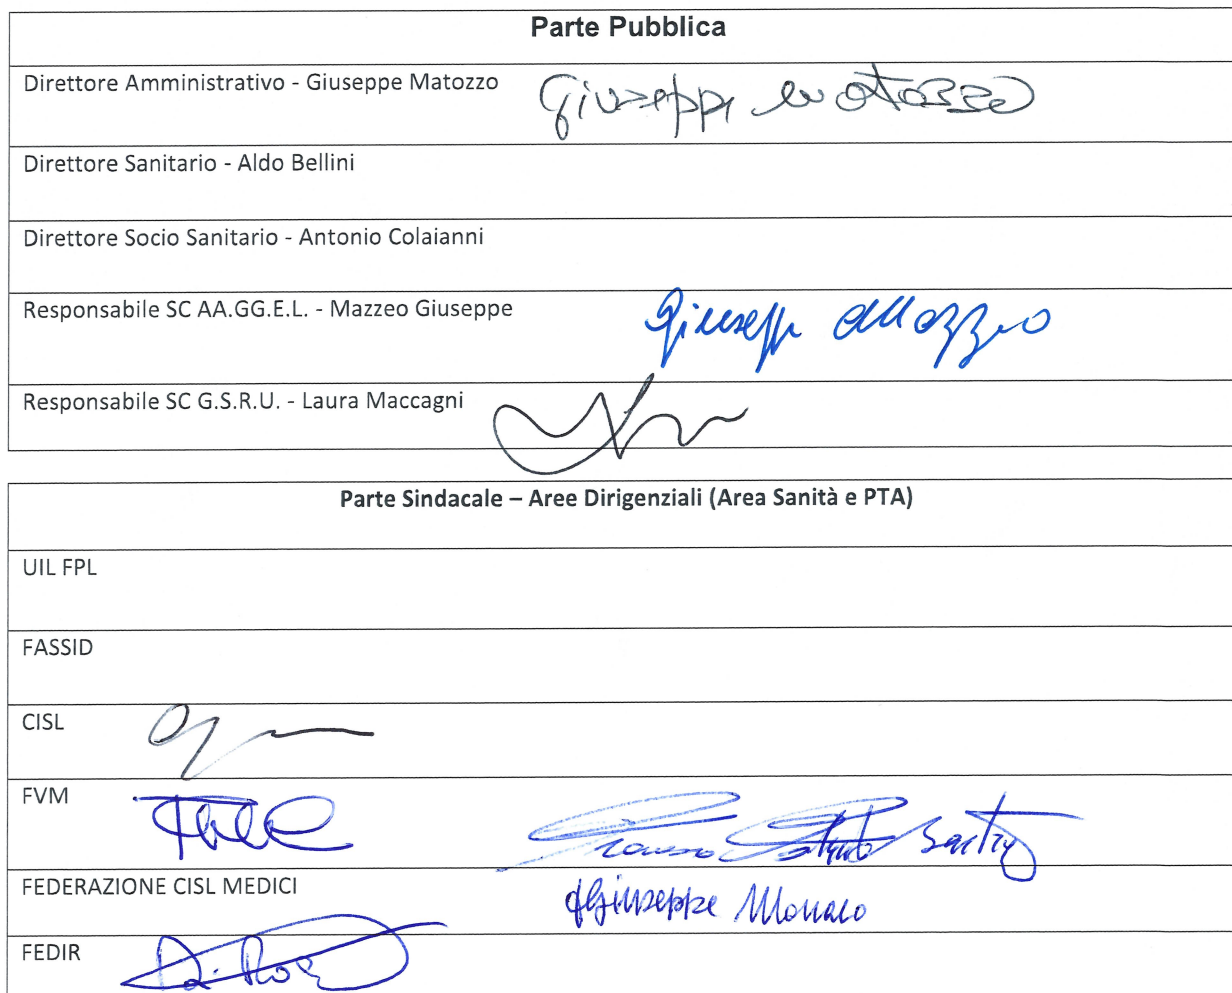 Parte Pubblica
Direttore Amministrativo - Giuseppe Matozzo
Giuseppe Matozzo
Direttore Sanitario - Aldo Bellini
Direttore Socio Sanitario - Antonio Colaianni
Responsabile SC AA.GG.E.L. - Mazzeo Giuseppe
Giuseppe Mazzeo
Responsabile SC G.S.R.U. - Laura Maccagni
Parte Sindacale – Aree Dirigenziali (Area Sanità e PTA)
UIL FPL
FASSID
CISL
FVM
FEDERAZIONE CISL MEDICI
Giuseppe Monaco
FEDIR